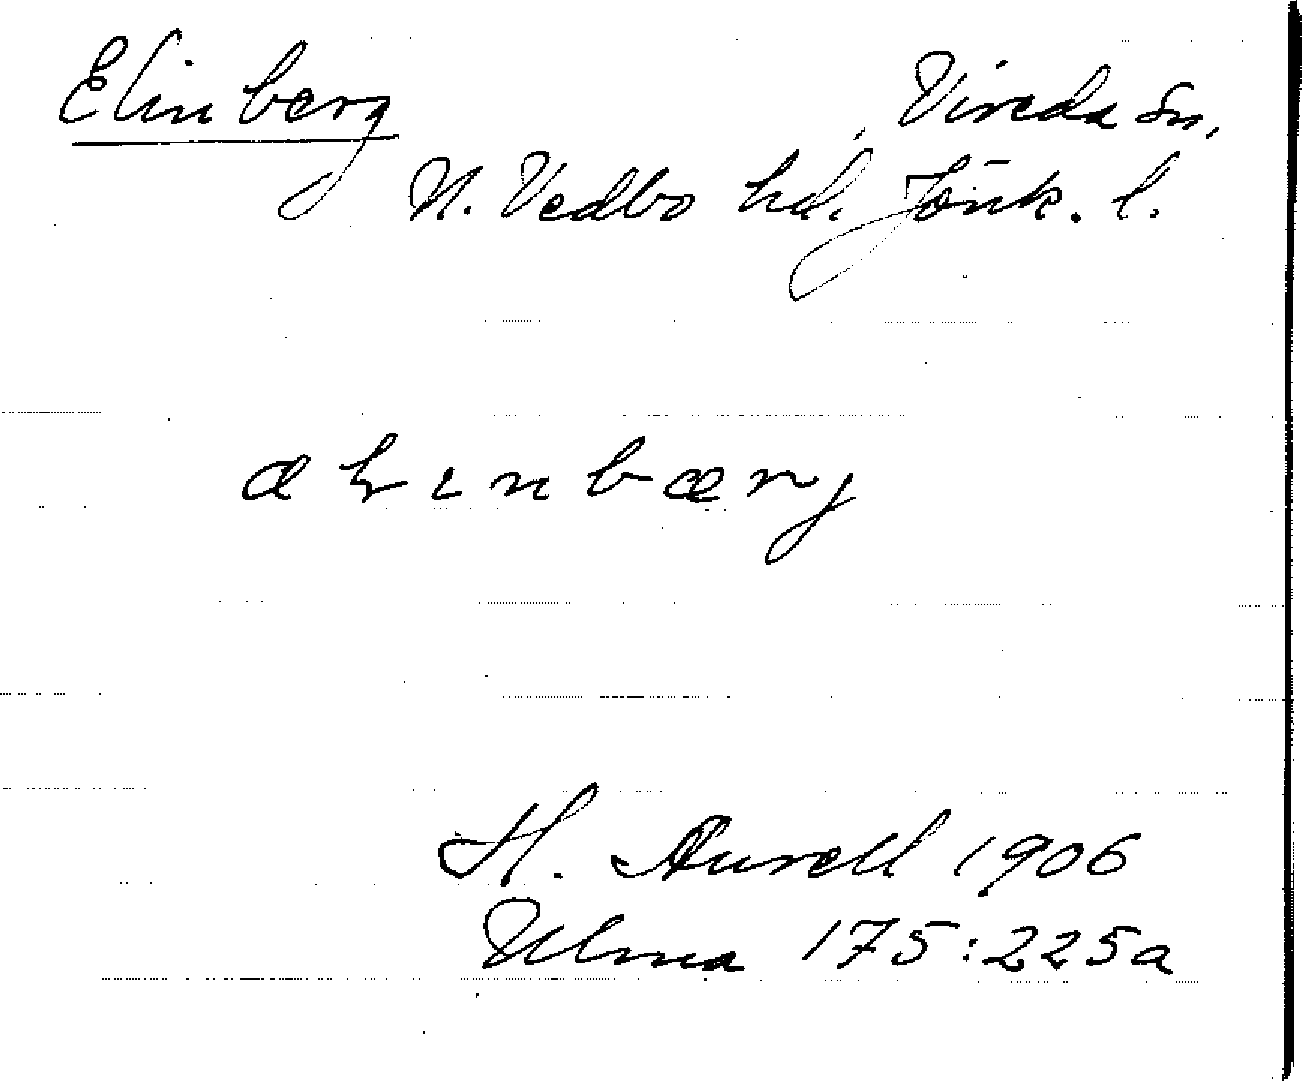 Elinberg Vireda sn,
N. Vedbo hd. Jönk. l.
H. Aurell 1906
Ulma 175:225a